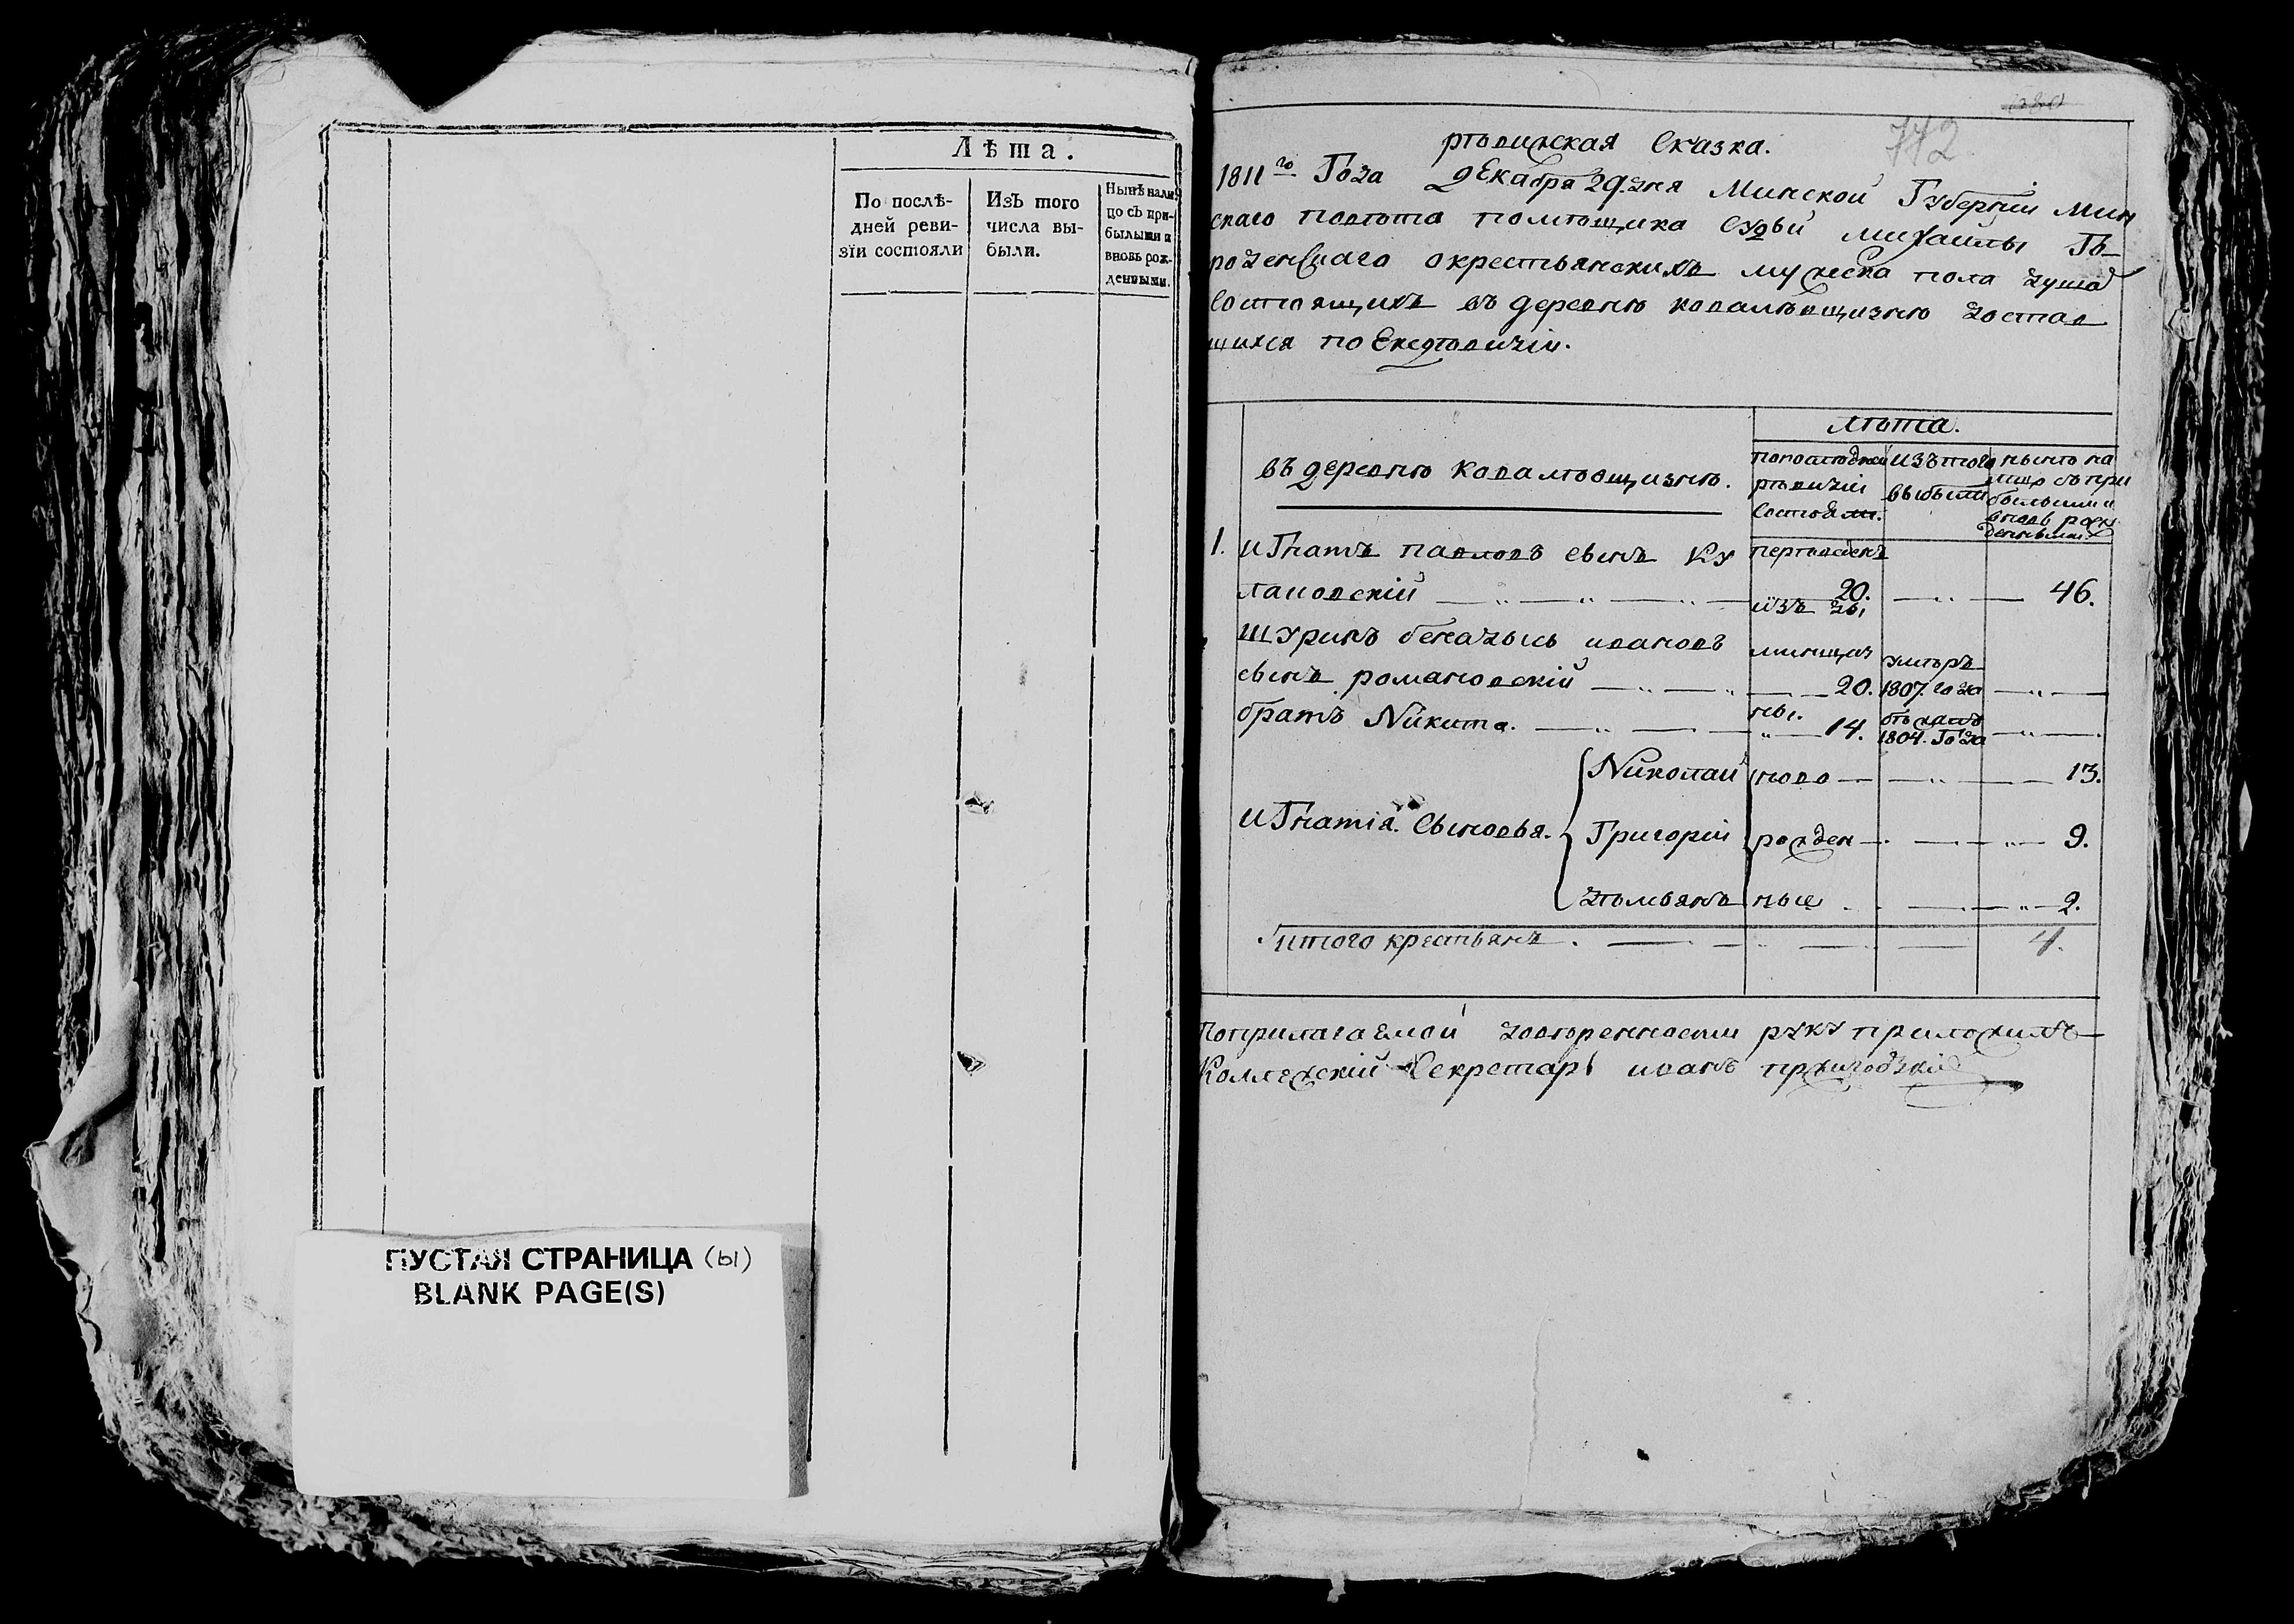 Лѣта.
По послѣ-
дней реви-
зїи состояли
Изъ того
числа вы-
были.
Нынѣ нали
цо съ при-
былыми и
вновь рож-
денными.
ПУСТАЯ СТРАНИЦА (ы)
BLANK PAGE(S)
772
рѣвижская Сказка.
1811го Года Декабря 29 дня Минской Губерніи Мин
скаго повѣта помѣщика Судьи Михайлы
окрестьянскихъ мужеска пола душъ
состоящихъ въ деревнѣ Ковалѣвщизнѣ
щихся по
лѣта.
въ деревнѣ Ковалѣвщизнѣ.
попослѣдней
рѣвизіи
состояли.
изътого
выбыли
нынѣ на
лицо съ при
былыми и
вновь рож
денными
1. игнатъ павловъ сынъ Ку
лановскій 20. 46.
шуринъ ивановъ
сынъ романовскій 20. умѣръ 1807. года
братъ Никита. 14. 1804. Года
игнатія Сыновья.
Николай ново 13.
Григорій рожден 9.
Дѣмьянъ ные 2.
итого крестьянъ 4.
руку приложилъ
Коллежскій Секретарь иванъ